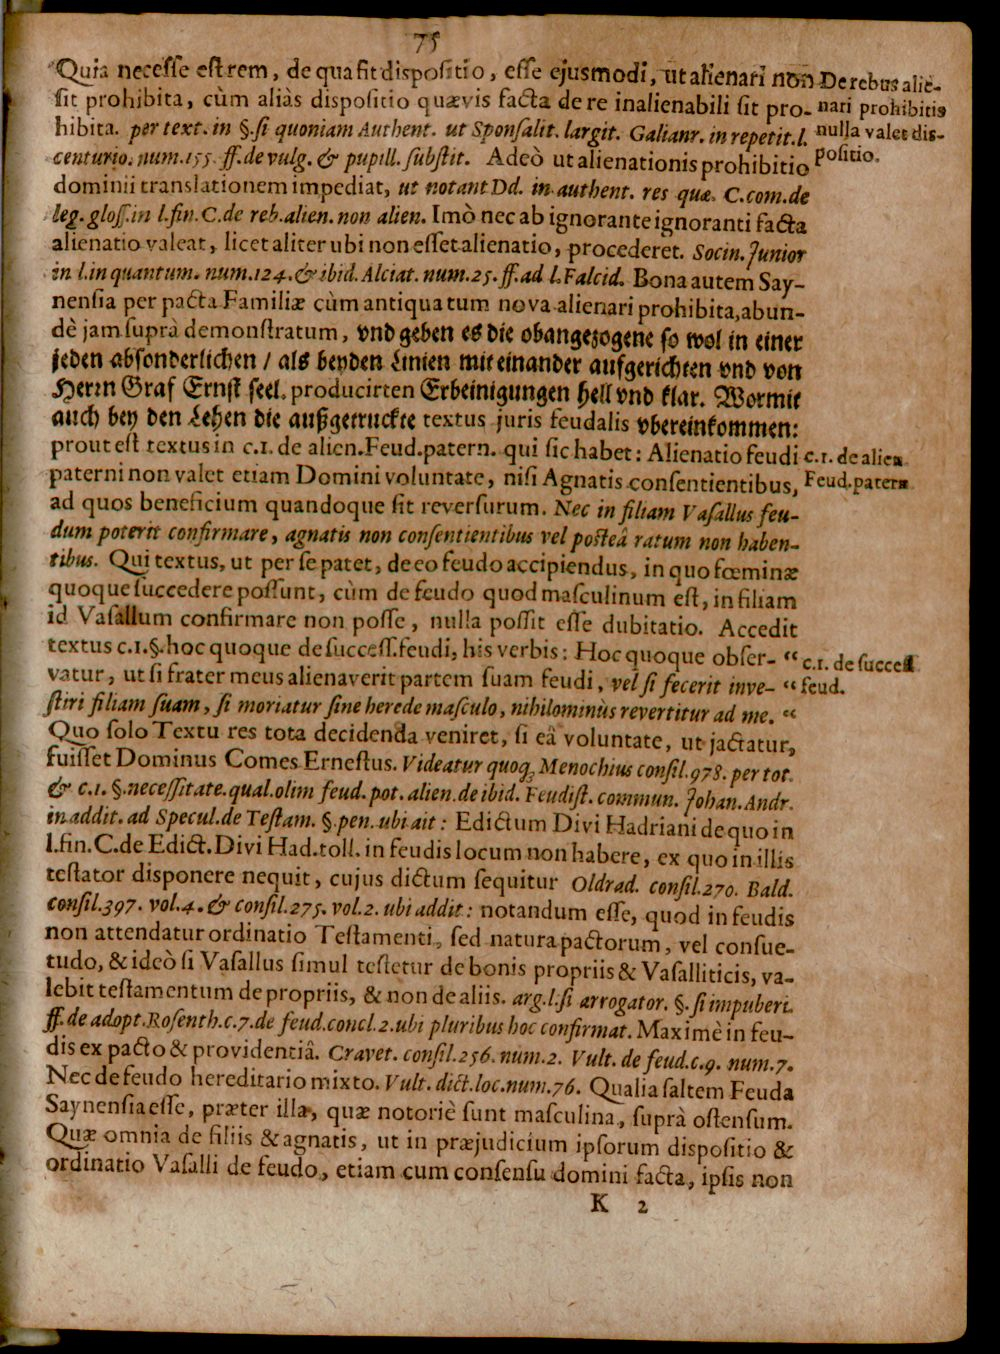 75
Quia necesse est rem, de qua fit dispositio, esse ejusmodi, ut alienari non
sit prohibita, cùm aliàs dispositio quævis facta de re inalienabili sit pro-
hibita. per text. in §. si quoniam Authent. ut Sponsalit. largit. Galianr. in repetit. l.
centurio. num. 155. ff. de vulg. & pupill. substit. Adeò ut alienationis prohibitio
dominii translationem impediat, ut notant Dd. in authent. res quæ. C. com. de
leg. gloss. in l. fin. C. de reb. alien. non alien. Imò nec ab ignorante ignoranti facta
alienatio valeat, licet aliter ubi non esset alienatio, procederet. Socin. Junior
in l. in quantum. num. 124. & ibid. Alciat. num. 25. ff. ad l. Falcid. Bona autem Say-
nensia per pacta Familiæ cùm antiqua tum nova alienari prohibita, abun-
dè jam suprà demonstratum, vnd geben es die obangezogene so wol in einer
jeden absonderlichen / als beyden Linien mit einander auffgerichten vnd von
Herrn Graf Ernst seel. producirten Erbeinigungen hell vnd klar. Wormit
auch bey den Lehen die außgetruckte textus juris feudalis vbereinkommen:
prout est textus in c. 1. de alien. Feud. patern. qui sic habet: Alienatio feudi
paterni non valet etiam Domini voluntate, nisi Agnatis consentientibus,
ad quos beneficium quandoque sit reversurum. Nec in filiam Vasallus feu-
dum poterit confirmare, agnatis non consentientibus vel posteâ ratum non haben-
tibus. Qui textus, ut per se patet, de eo feudo accipiendus, in quo fœminæ
quoque succedere possunt, cùm de feudo quod masculinum est, in filiam
id Vasallum confirmare non posse, nulla possit esse dubitatio. Accedit
textus c. 1. §. hoc quoque de success. feudi, his verbis: Hoc quoque obser- “
vatur, ut si frater meus alienaverit partem suam feudi, vel si fecerit inve- “
stiri filiam suam, si moriatur sine herede masculo, nihilominùs revertitur ad me. “
Quo solo Textu res tota decidenda veniret, si eâ voluntate, ut jactatur,
fuisset Dominus Comes Ernestus. Videatur quoq; Menochius consil. 978. per tot.
& c. 1. §. necessitate. qual. olim feud. pot. alien. de ibid. Feudist. commun. Johan. Andr.
in addit. ad Specul. de Testam. §. pen. ubi ait: Edictum Divi Hadriani de quo in
l. fin. C. de Edict. Divi Had. toll. in feudis locum non habere, ex quo in illis
testator disponere nequit, cujus dictum sequitur Oldrad. consil. 270. Bald.
consil. 397. vol. 4. & consil. 275. vol. 2. ubi addit: notandum esse, quod in feudis
non attendatur ordinatio Testamenti, sed natura pactorum, vel consue-
tudo, & ideò si Vasallus simul testetur de bonis propriis & Vasalliticis, va-
lebit testamentum de propriis, & non de aliis. arg. l. si arrogator. §. si impuberi.
ff. de adopt. Rosenth. c. 7. de feud. concl. 2. ubi pluribus hoc confirmat. Maximè in feu-
dis ex pacto & providentiâ. Cravet. consil. 256. num. 2. Vult. de feud. c. 9. num. 7.
Nec de feudo hereditario mixto. Vult. dict. loc. num. 76. Qualia saltem Feuda
Saynensia esse, præter illa, quæ notoriè sunt masculina, suprà ostensum.
Quæ omnia de filiis & agnatis, ut in præjudicium ipsorum dispositio &
ordinatio Vasalli de feudo, etiam cum consensu domini facta, ipsis non
K 2
De rebus alie-
nari prohibitis
nulla valet dis-
positio.
c. 1. de alien.
Feud. patern.
c. 1. de success.
feud.